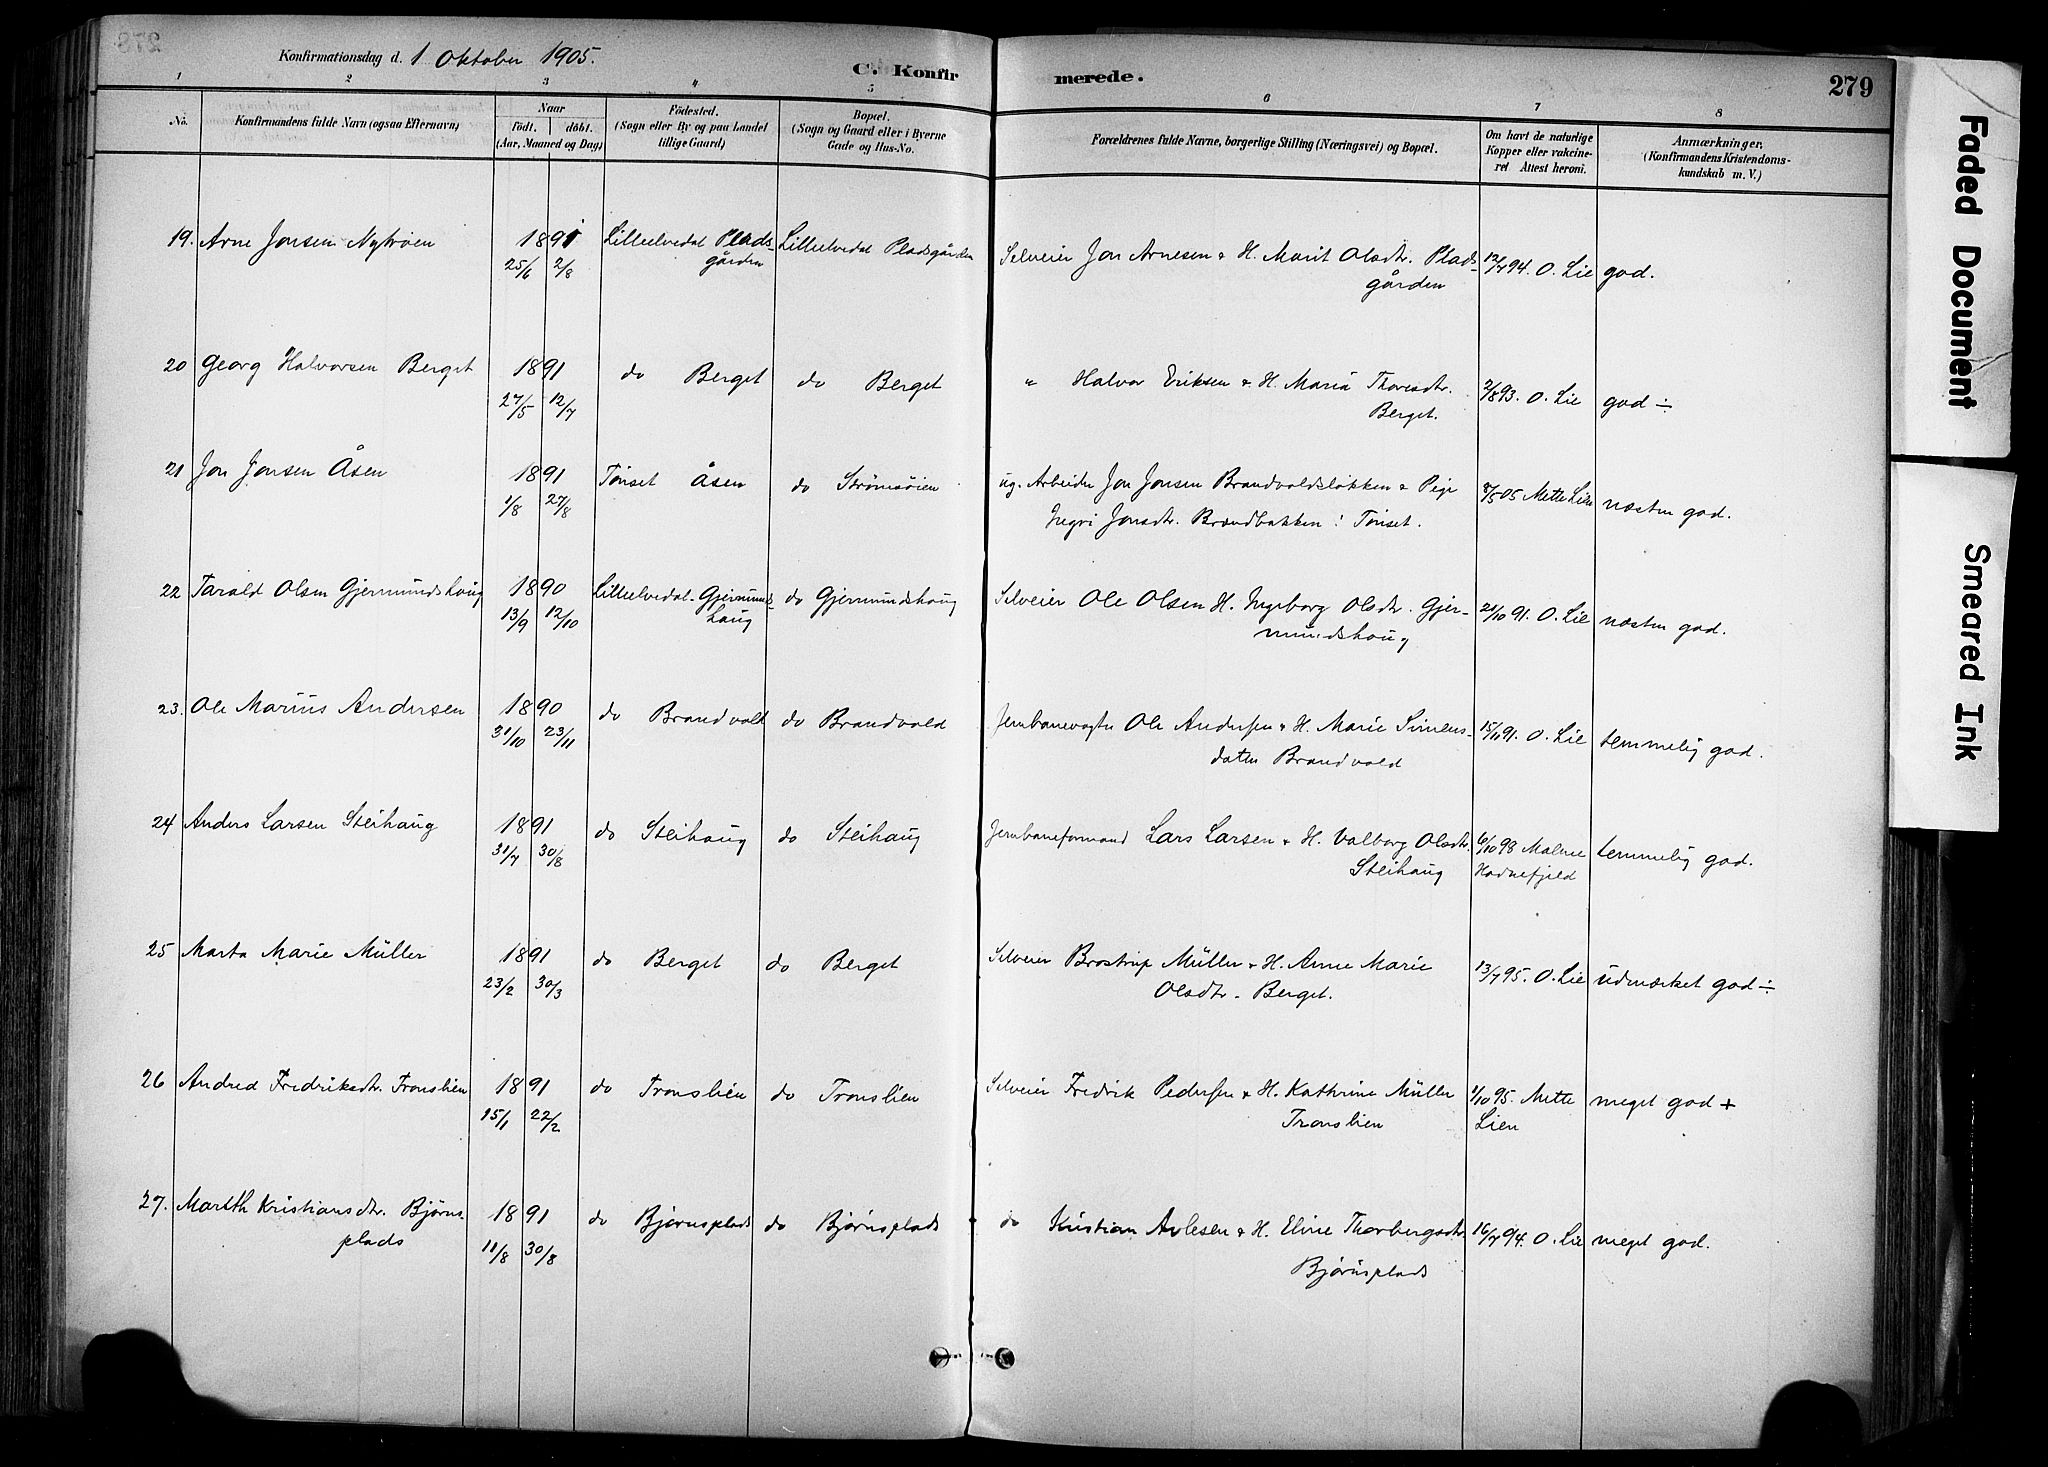 Konfirmationsdag d. 1 Oktober 1905.
C. Konfirmerede.
279
1 2 3 4 5 6 7 8
No.
Konfirmandens fulde Navn (ogsaa Efternavn)
Naar
födt. döbt.
(Aar, Maaned og Dag)
Födested.
(Sogn eller By og paa Landet
tillige Gaard)
Bopæl.
(Sogn og Gaard eller i Byerne
Gade og Hus-No.
Forældrenes fulde Navne, borgerlige Stilling (Næringsvei) og Bopæl.
Om havt de naturlige
Kopper eller vakcine-
ret Attest heroni.
Anmærkninger.
(Konfirmandens Kristendoms-
kundskab m. V.)
19. Arne Jonsen Nytrøen 1891 Lilleelvedal Plads- Lilleelvedal Pladsgården Selveier Jon Arnesen & H. Marit Olsdtr. Plads- 12/7 94. O. Lie god.
25/6 2/8 gården gården
20 Georg Halvorsen Berget 1891 do Berget do Berget " Halvor Eriksen & H. Maria Thoresdtr. 2/8 93. O. Lie god ÷
27/5 12/7 Berget.
21 Jon Jonsen Åsen 1891 Tönset Åsen do Strömsöien ug. Arbeider Jon Jonsen Brandvoldsløkken & Pige 8/5 05 Mette Lien næsten god.
1/8 27/8 Ingri Jonsdtr. Brændbakken i Tönset.
22 Tarald Olsen Gjermundshoug 1890 Lilleelvedal Gjermunds- do Gjermundshoug Selveier Ole Olsen H. Ingeborg Olsdtr. Gjer- 21/10 91. O. Lie næsten god.
13/9 12/10 houg mundshoug
23. Ole Marius Andersen 1890 do Brandvold do Brandvold Jernbanevogter Ole Andersen & H. Marie Simens- 15/11 91. O. Lie temmelig god.
31/10 23/11 datter Brandvold
24 Anders Larsen Steihaug 1891 do Steihaug do Steihaug Jernbaneformand Lars Larsen & H. Valborg Olsdtr. 6/10 98 Malene temmelig god.
31/7 30/8 Steihaug Hodnefjeld
25 Marta Marie Müller 1891 do Berget do Berget Selveier Brostrup Müller & H. Anne Marie 13/7 95. O. Lie udmærket god ÷
23/2 30/3 Olsdtr. Berget.
26 Andrea Fredriksdtr. Tronslien 1891 do Tronslien do Tronslien Selveier Fredrik Pedersen & H. Kathrine Müller 1/10 95. Mette meget god +
15/1 22/2 Tronslien Lien
27. Mareth Kristiansdtr. Bjørns- 1891 do Bjørnsplads do Bjørnsplads do Kristian Avlesen & H. Eline Thorbergsdtr. 16/7 94. O. Lie meget god.
plads 11/8 30/8 Bjørnsplads
Faded Document
Smeared Ink